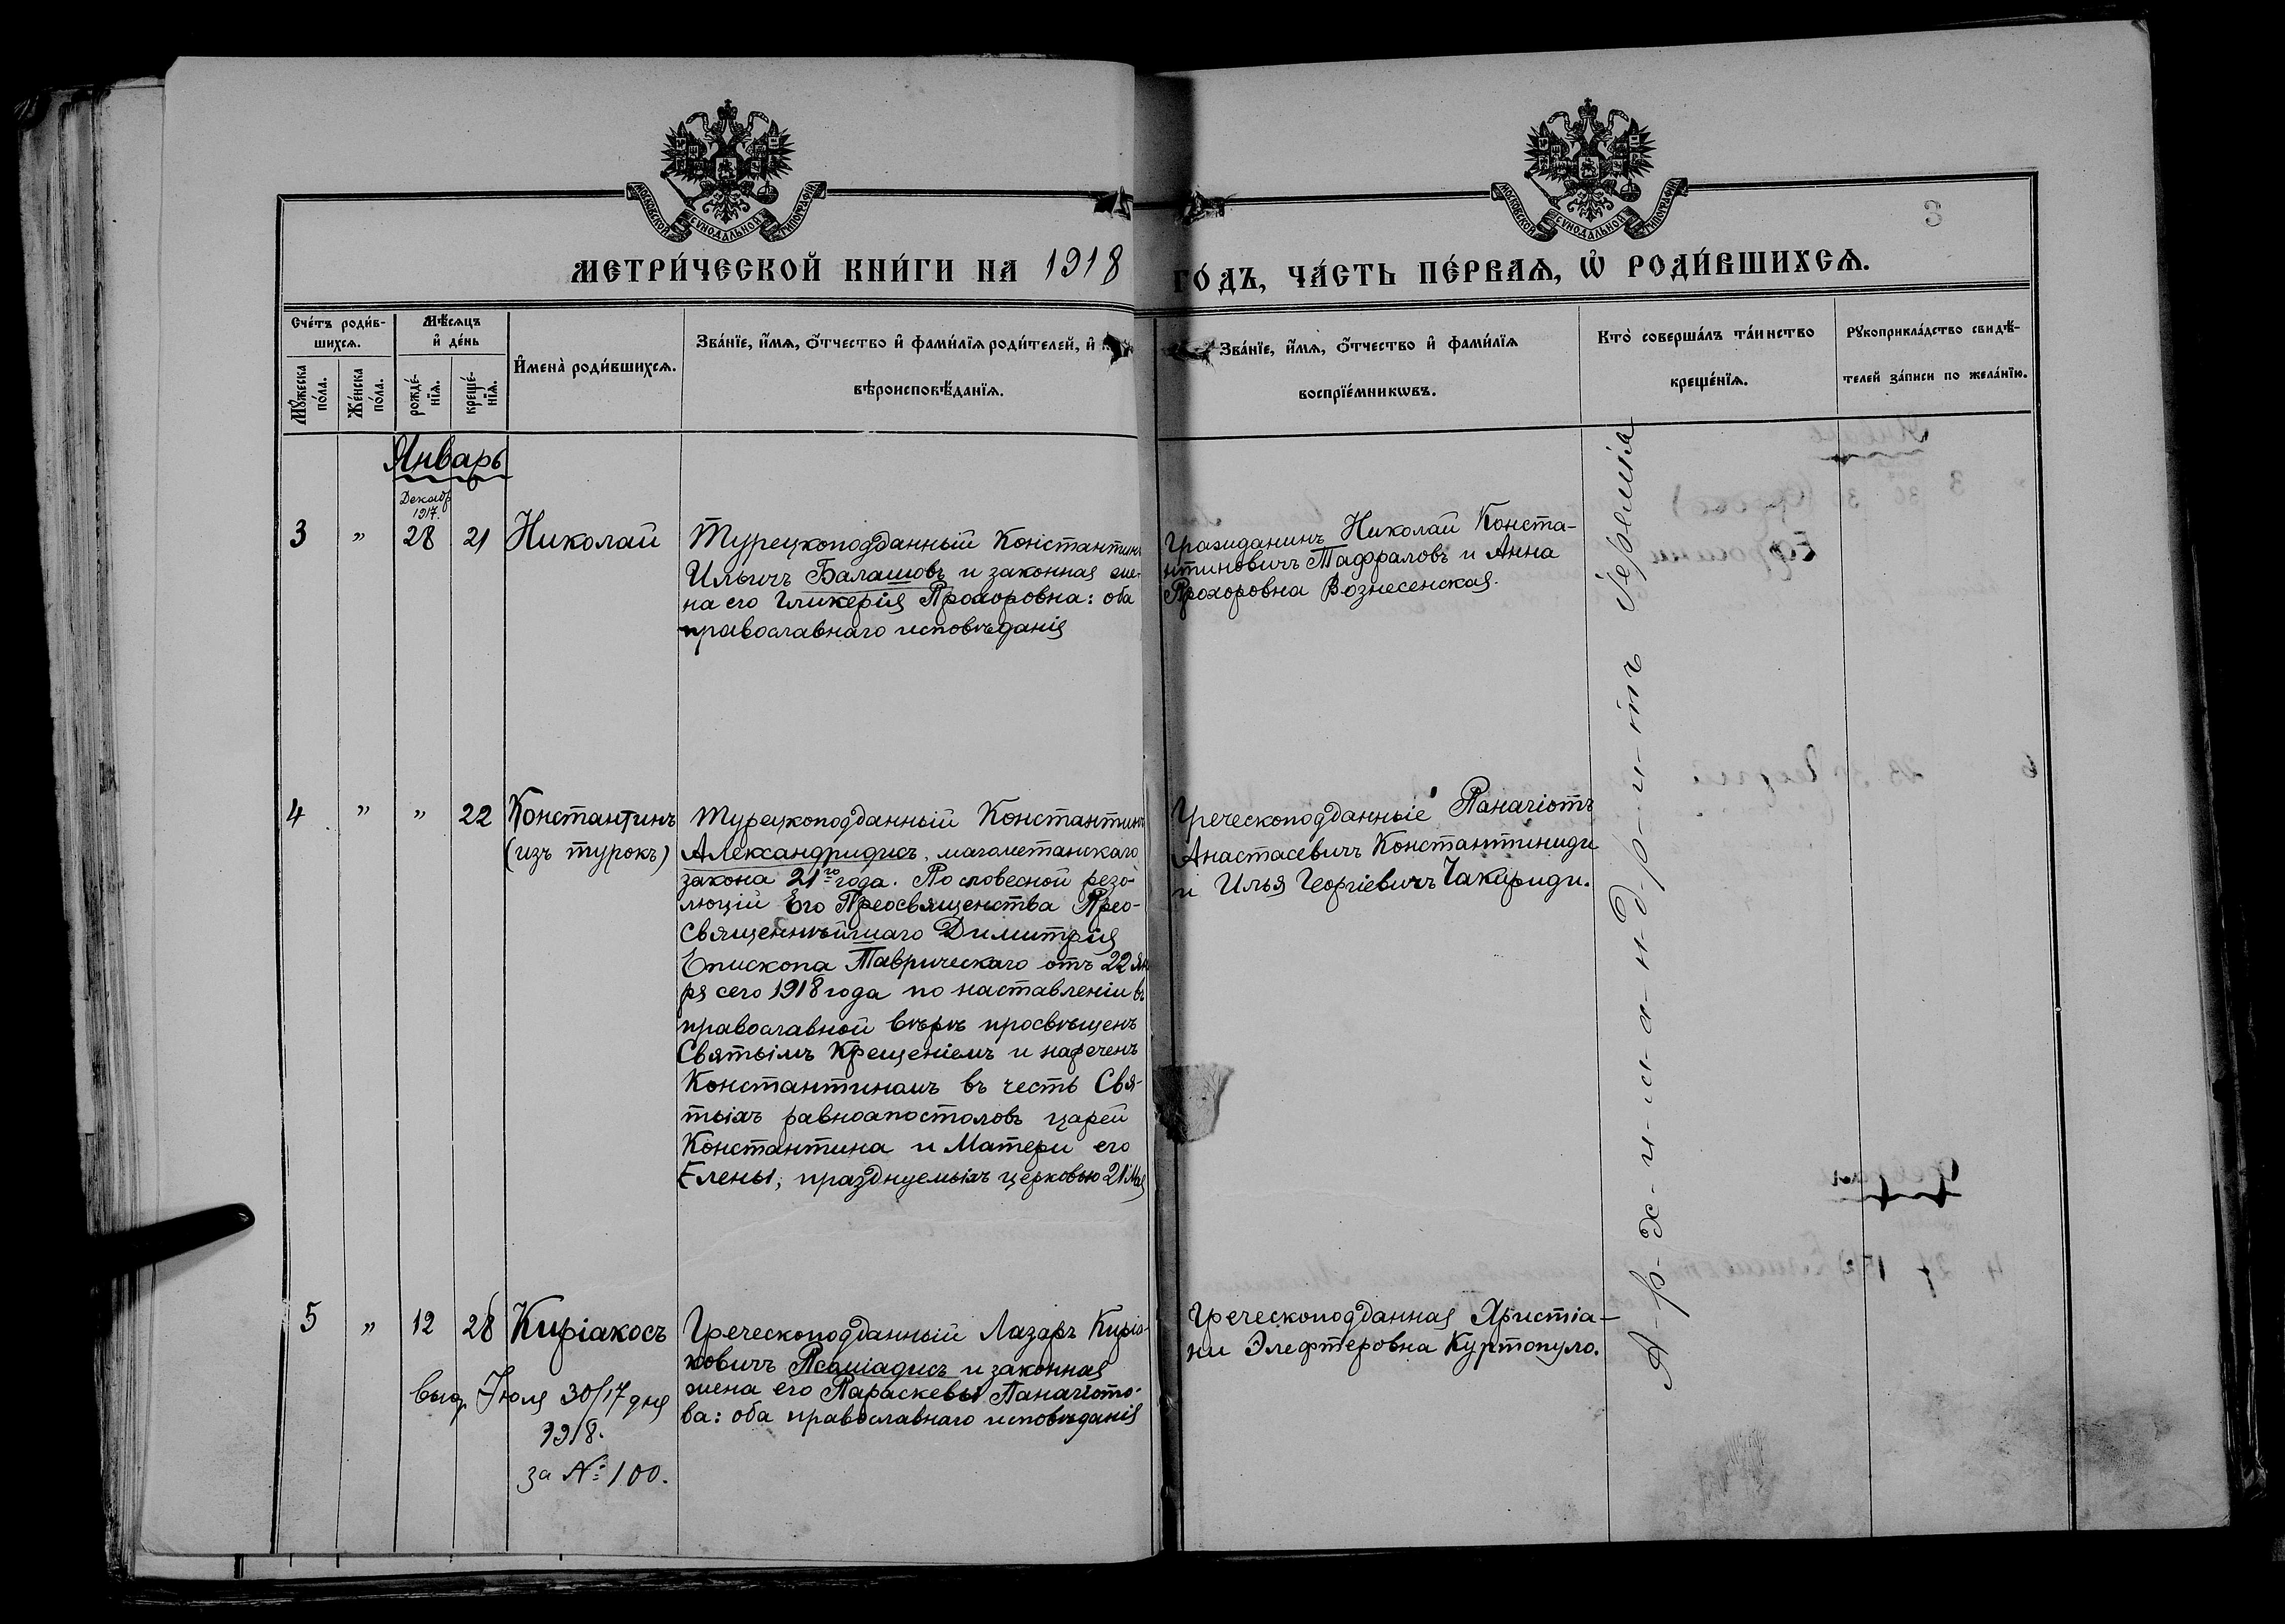 МОСКОВСКОЙ СУНОДАЛЬНОЙ ТИПОГРАФІИ
МОСКОВСКОЙ СУНОДАЛЬНОЙ ТИПОГРАФІИ
3
МЕТРИ́ЧЕСКОЙ КНИ́ГИ НА 1918 ГО́ДЪ, ЧА́СТЬ ПЕ́РВАѦ, Ѡ҆ РОДИ́ВШИХСѦ.
Сче́тъ роди́в-
шихсѧ.
Мꙋ́жеска
по́ла.
Же́нска
по́ла.
Мѣ́сѧцъ
и҆ де́нь
рожде́-
нїѧ.
креще́-
нїѧ.
И҆мена̀ роди́вшихсѧ.
Зва́нїе, и҆́мѧ, ѻ҆́тчество и҆ фами́лїѧ роди́телей, и҆
вѣроисповѣ́данїѧ.
Зва́нїе, и҆́мѧ, ѻ҆́тчество и҆ фами́лїѧ
воспрїе́мникѡвъ.
Кто̀ соверша́лъ та́инство
креще́нїѧ.
Рꙋкоприкла́дство свидѣ́-
телей за́писи по жела́нїю.
Январь
Декабр
1917.
3 " 28 21 Николай
Турецкоподданный Константинъ
Ильичъ Балашовъ и законная же-
на его Гликерія Прохоровна: оба
православнаго исповѣданія
Гражданинъ Николай Конста-
нтиновичъ Тафраловъ и Анна
Прохоровна Вознесенская.
4 " " 22 Константинъ
(изъ турокъ)
Турецкоподданный Константинъ
Александридисъ, магометанскаго
закона 21го года. По словесной резо-
люціи Его Преосвященства Прео-
священнѣйшаго Димитрія
Епископа Таврическаго отъ 22 Ян
ря сего 1918 года по наставленіи въ
православной вѣрѣ просвѣщенъ
Святымъ Крещеніемъ и нареченъ
Константиномъ въ честь Свя-
тыхъ равноапостоловъ царей
Константина и Матери его
Елены, празднуемыхъ церковью 21 Мая
Греческоподданные Панагіотъ
Анастасевичъ Константиниди
и Илья Георгіевичъ Чакириди.
5 " 12 28 Киріакосъ
выд. Іюля 30/17 дня
1918.
за № 100.
Греческоподданный Лазарь Киріа-
ковичъ Псоміадисъ и законная
жена его Параскевы Панагіото-
ва: оба православнаго исповѣданія
Греческоподданная Христіа-
ни Элефтеровна Куртопуло.
А-р-х-и-м-а-н-д-р-и-тъ